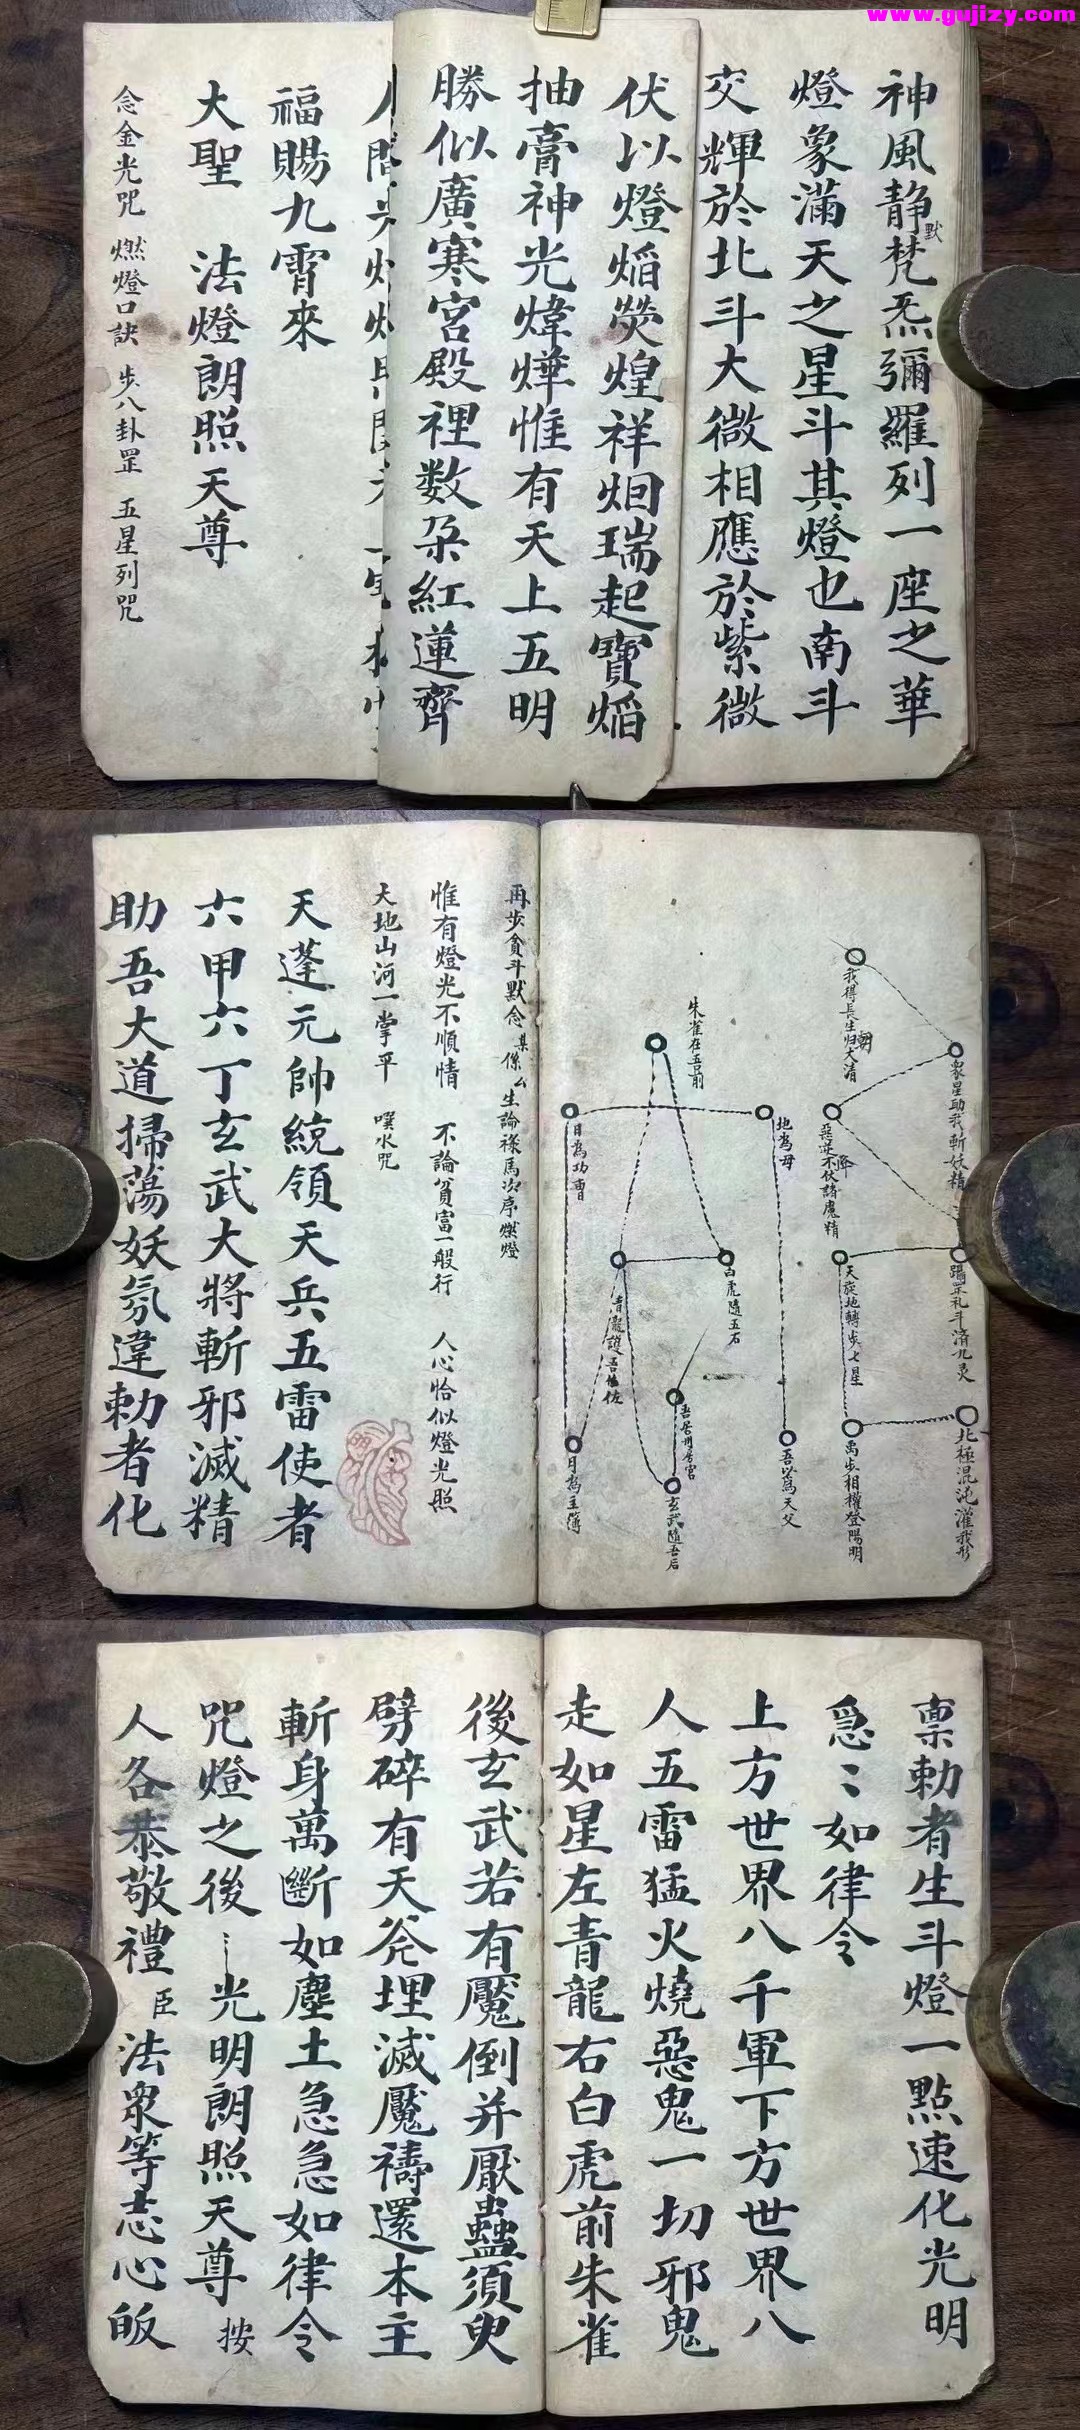 www.gujizy.com
神風静默梵炁彌羅列一座之華
燈象滿天之星斗其燈也南斗
交輝於北斗大微相應於紫微
伏以燈焰熒煌祥烟瑞起寶焰
抽膏神光煒燁惟有天上五明
勝似廣寒宮殿裡数朵紅蓮齊
福賜九霄來
大聖 法燈朗照天尊
念金光咒 燃燈口訣 步八卦罡 五星列咒
北極混沌灌我形
禹步相權登陽明
天旋地轉步七星
蹋罡礼斗済九灵
惡逆不伏降諸魔精
衆星助我斬妖精
我得長生归朝大清
吾以為天父
地為母
日為功曹
月為主簿
朱雀在吾前
白虎隨吾右
吾居中房宮
玄武隨吾后
再步貪斗默念某係么生論祿馬次序燃燈
惟有燈光不順情 不論貧富一般行 人心恰似燈光照
天地山河一掌平 噀水咒
天蓬元帥統領天兵五雷使者
六甲六丁玄武大將斬邪滅精
助吾大道掃蕩妖氛違勅者化
禀勅者生斗燈一點速化光明
急〻如律令
上方世界八千軍下方世界八
人五雷猛火燒惡鬼一切邪鬼
走如星左青龍右白虎前朱雀
後玄武若有魘倒并厭蠱須臾
劈碎有天斧埋滅魘禱還本主
斬身萬斷如塵土急急如律令
咒燈之後 光明朗照天尊 按
人各恭敬禮 臣 法衆等志心皈